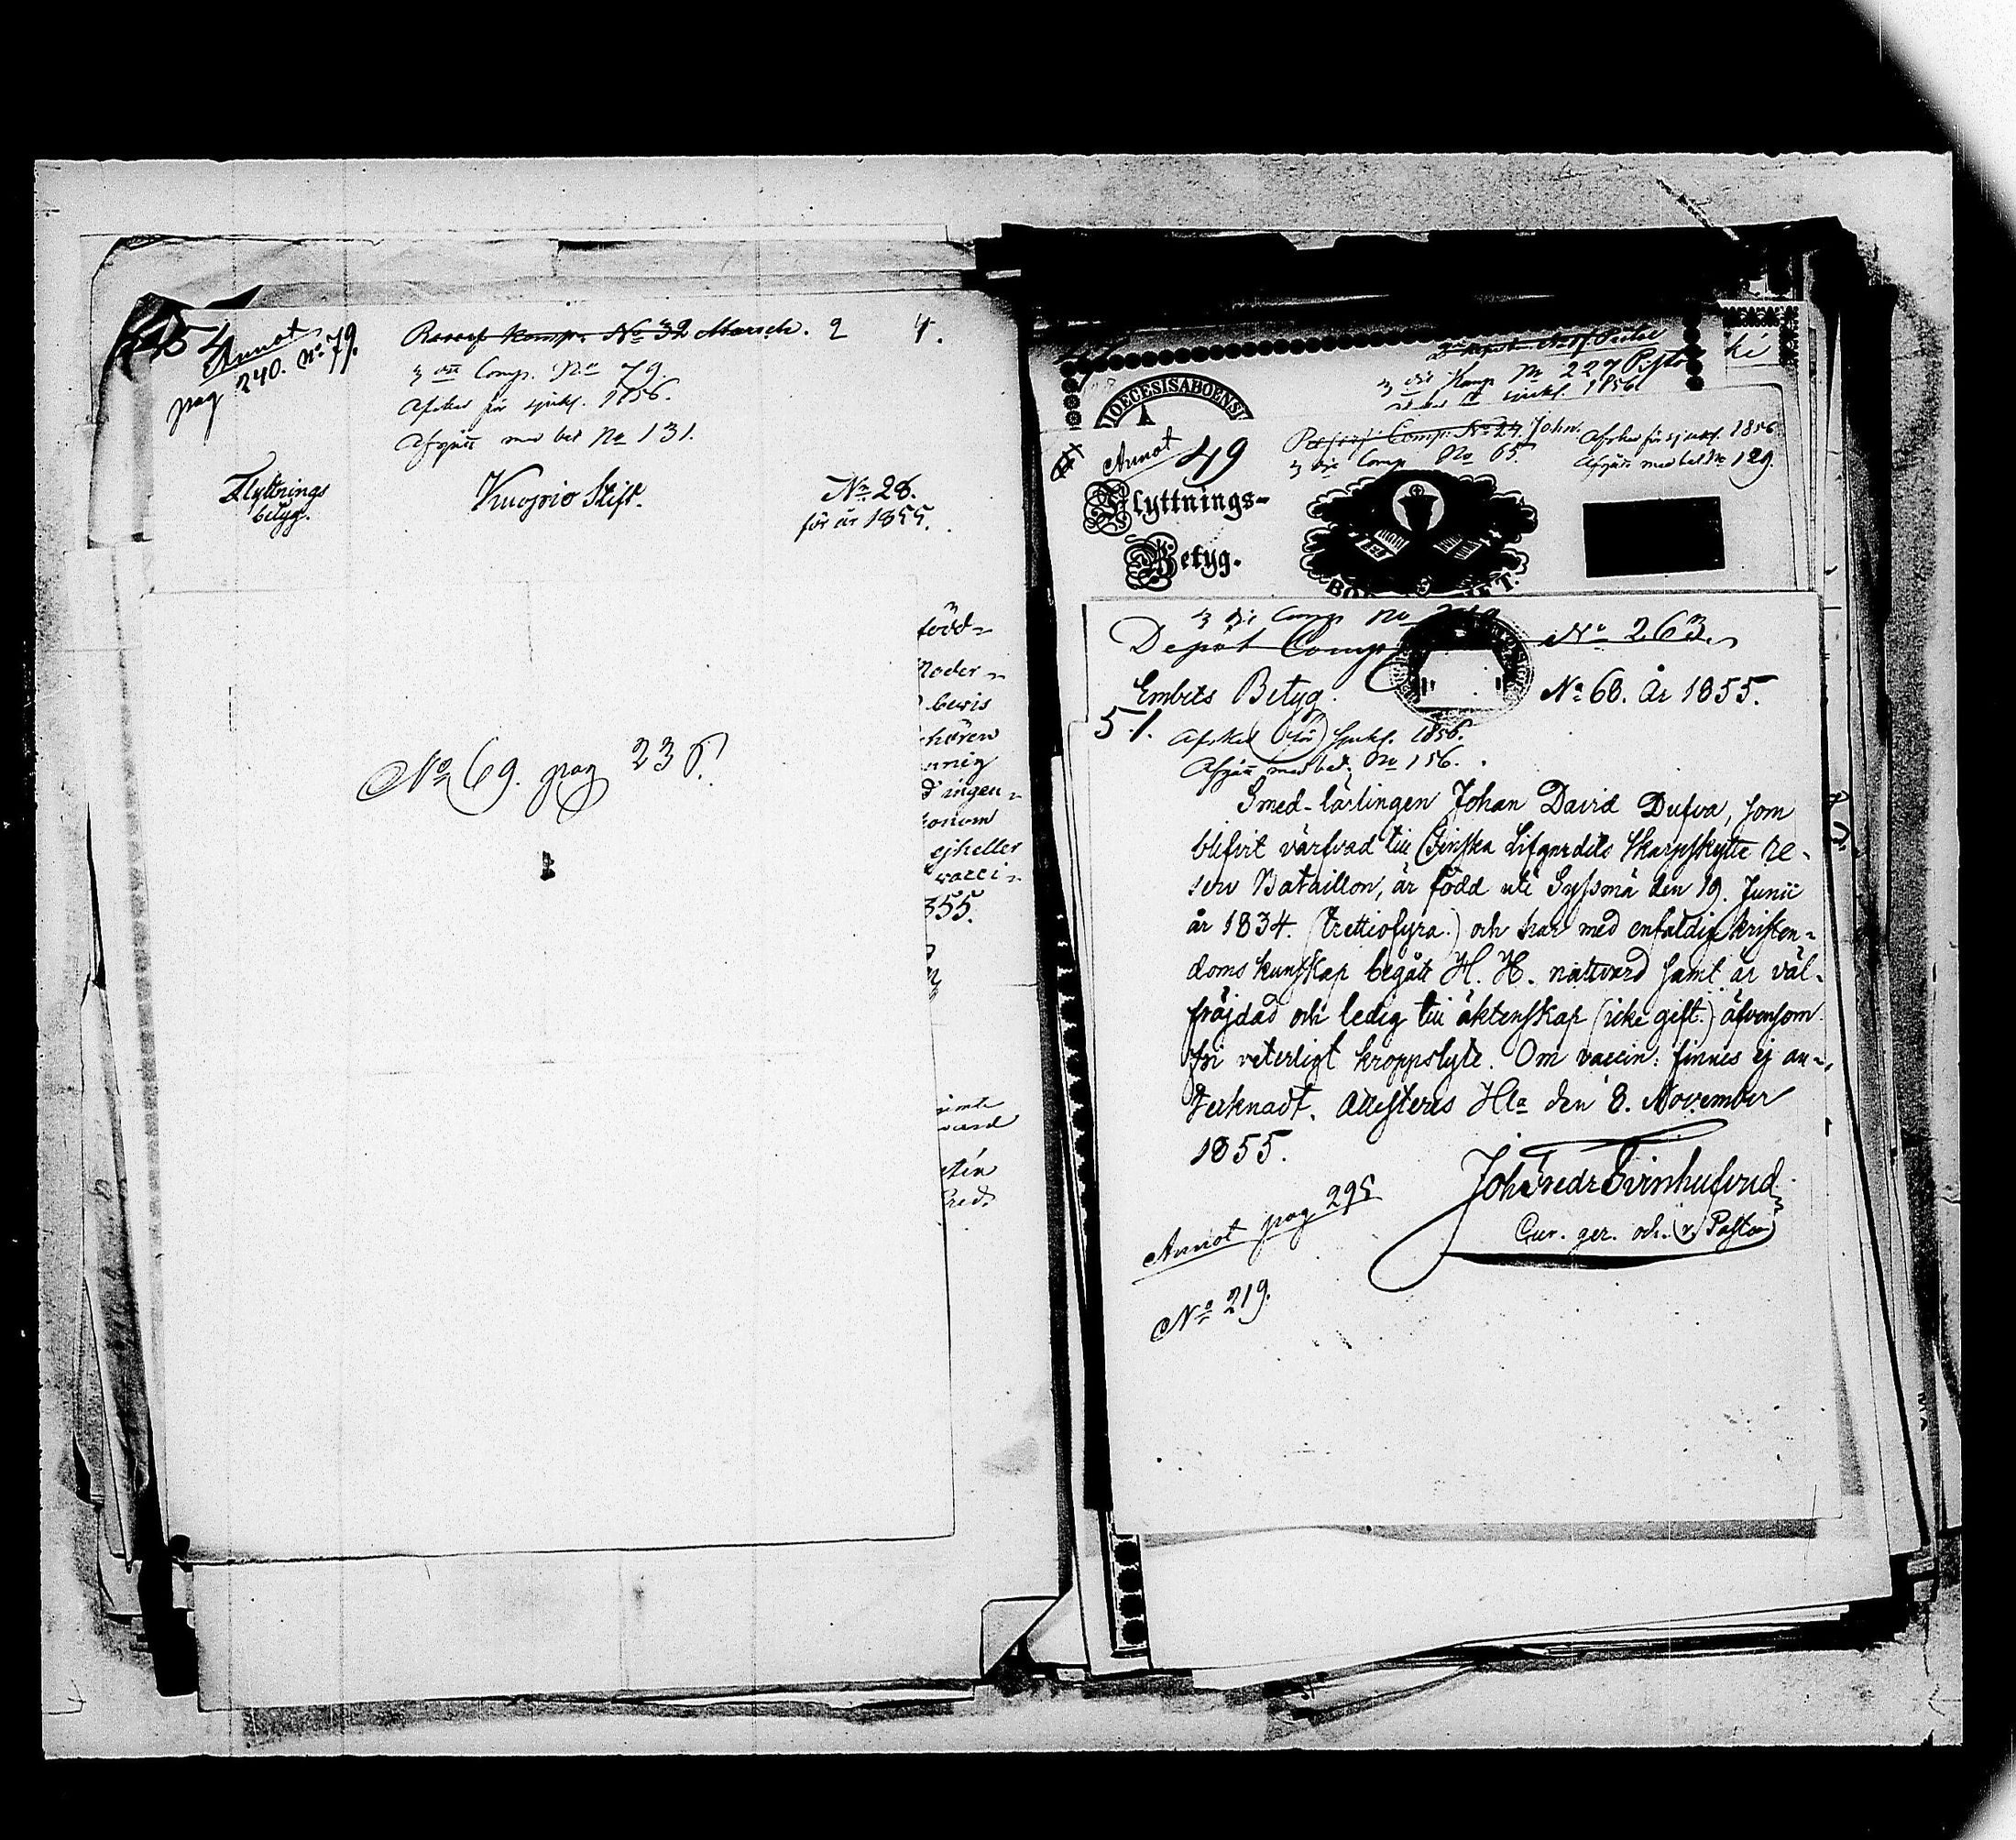 454
Annot
pag 240. No 79.
Reserf komp. No 32 Marsch. 2 4.
3 die Comp. No 79.
Afsked för sjukl. 1856.
Afgått med bet No 131.
Flyttnings
betyg.
Kuopio Stift.
No 28.
för år 1855.
född-
Moder-
bevis
hören
ingen-
honom
ejheller
vacci-
355.
No 69. pag 236.
3 die Komp No 227
1856
DIOECESISABOENSI
Annot 49
Reserf Comp. No 24. John.
3 die Comp No 65.
Afsked för sjukl. 1856
Afgått med bet No 129.
Flyttnings-
Betyg.
3 die Comp No
Depôt Comp No 263.
Embets Betyg. No 68. År 1855.
51. Afsked för sjukl. 1856.
Afgått med bet. No 156.
Smed-lärlingen Johan David Dufva, som
blifvit värfvad till Finska Lifgardets Skarpskytte re-
serv Bataillon, är född uti Sysmä den 19. Junii
år 1834. (trettiofyra.) och har med enfaldig kristen-
doms kunskap begått H. H. nattvard samt är väl-
fräjdad och ledig till äktenskap (icke gift.) äfvensom
fri veterligt kroppslyte. Om vaccin: finnes ej an-
tecknadt. Attesteras Hla den 8. November
1855.
Joh Fredr Svinhufvud
Cur. ger. och v. Pastor
Annot pag 295
No 219.